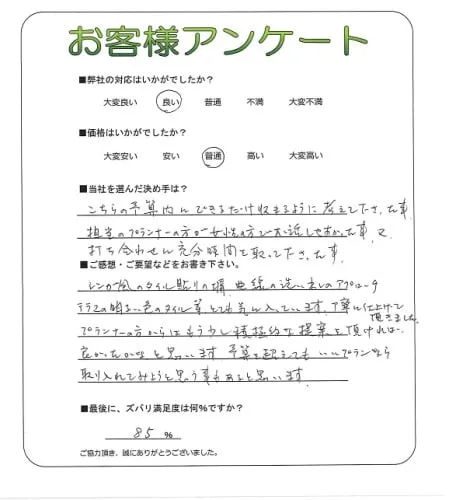 お客様アンケート
■弊社の対応はいかがでしたか？
大変良い 良い 普通 不満 大変不満
■価格はいかがでしたか？
大変安い 安い 普通 高い 大変高い
■当社を選んだ決め手は？
こちらの予算内にできるだけ収まるように考えて下さった事
担当のプランナーの方が女性の方でお話しやすかった事、又
打ち合わせに充分時間を取って下さった事。
■ご感想・ご要望などをお書き下さい。
レンガ風のタイル貼りの塀、曲線の洗い出しのアプローチ
テラスの明るい色のタイル等とても気に入っています。丁寧に仕上げて
頂きました。
プランナーの方からはもう少し積極的な提案を頂ければ
良かったかなと思います 予算を超えても いいプランなら
取り入れてみようと思う事もあると思います。
■最後に、ズバリ満足度は何%ですか？
85 %
ご協力頂き、誠にありがとうございました。